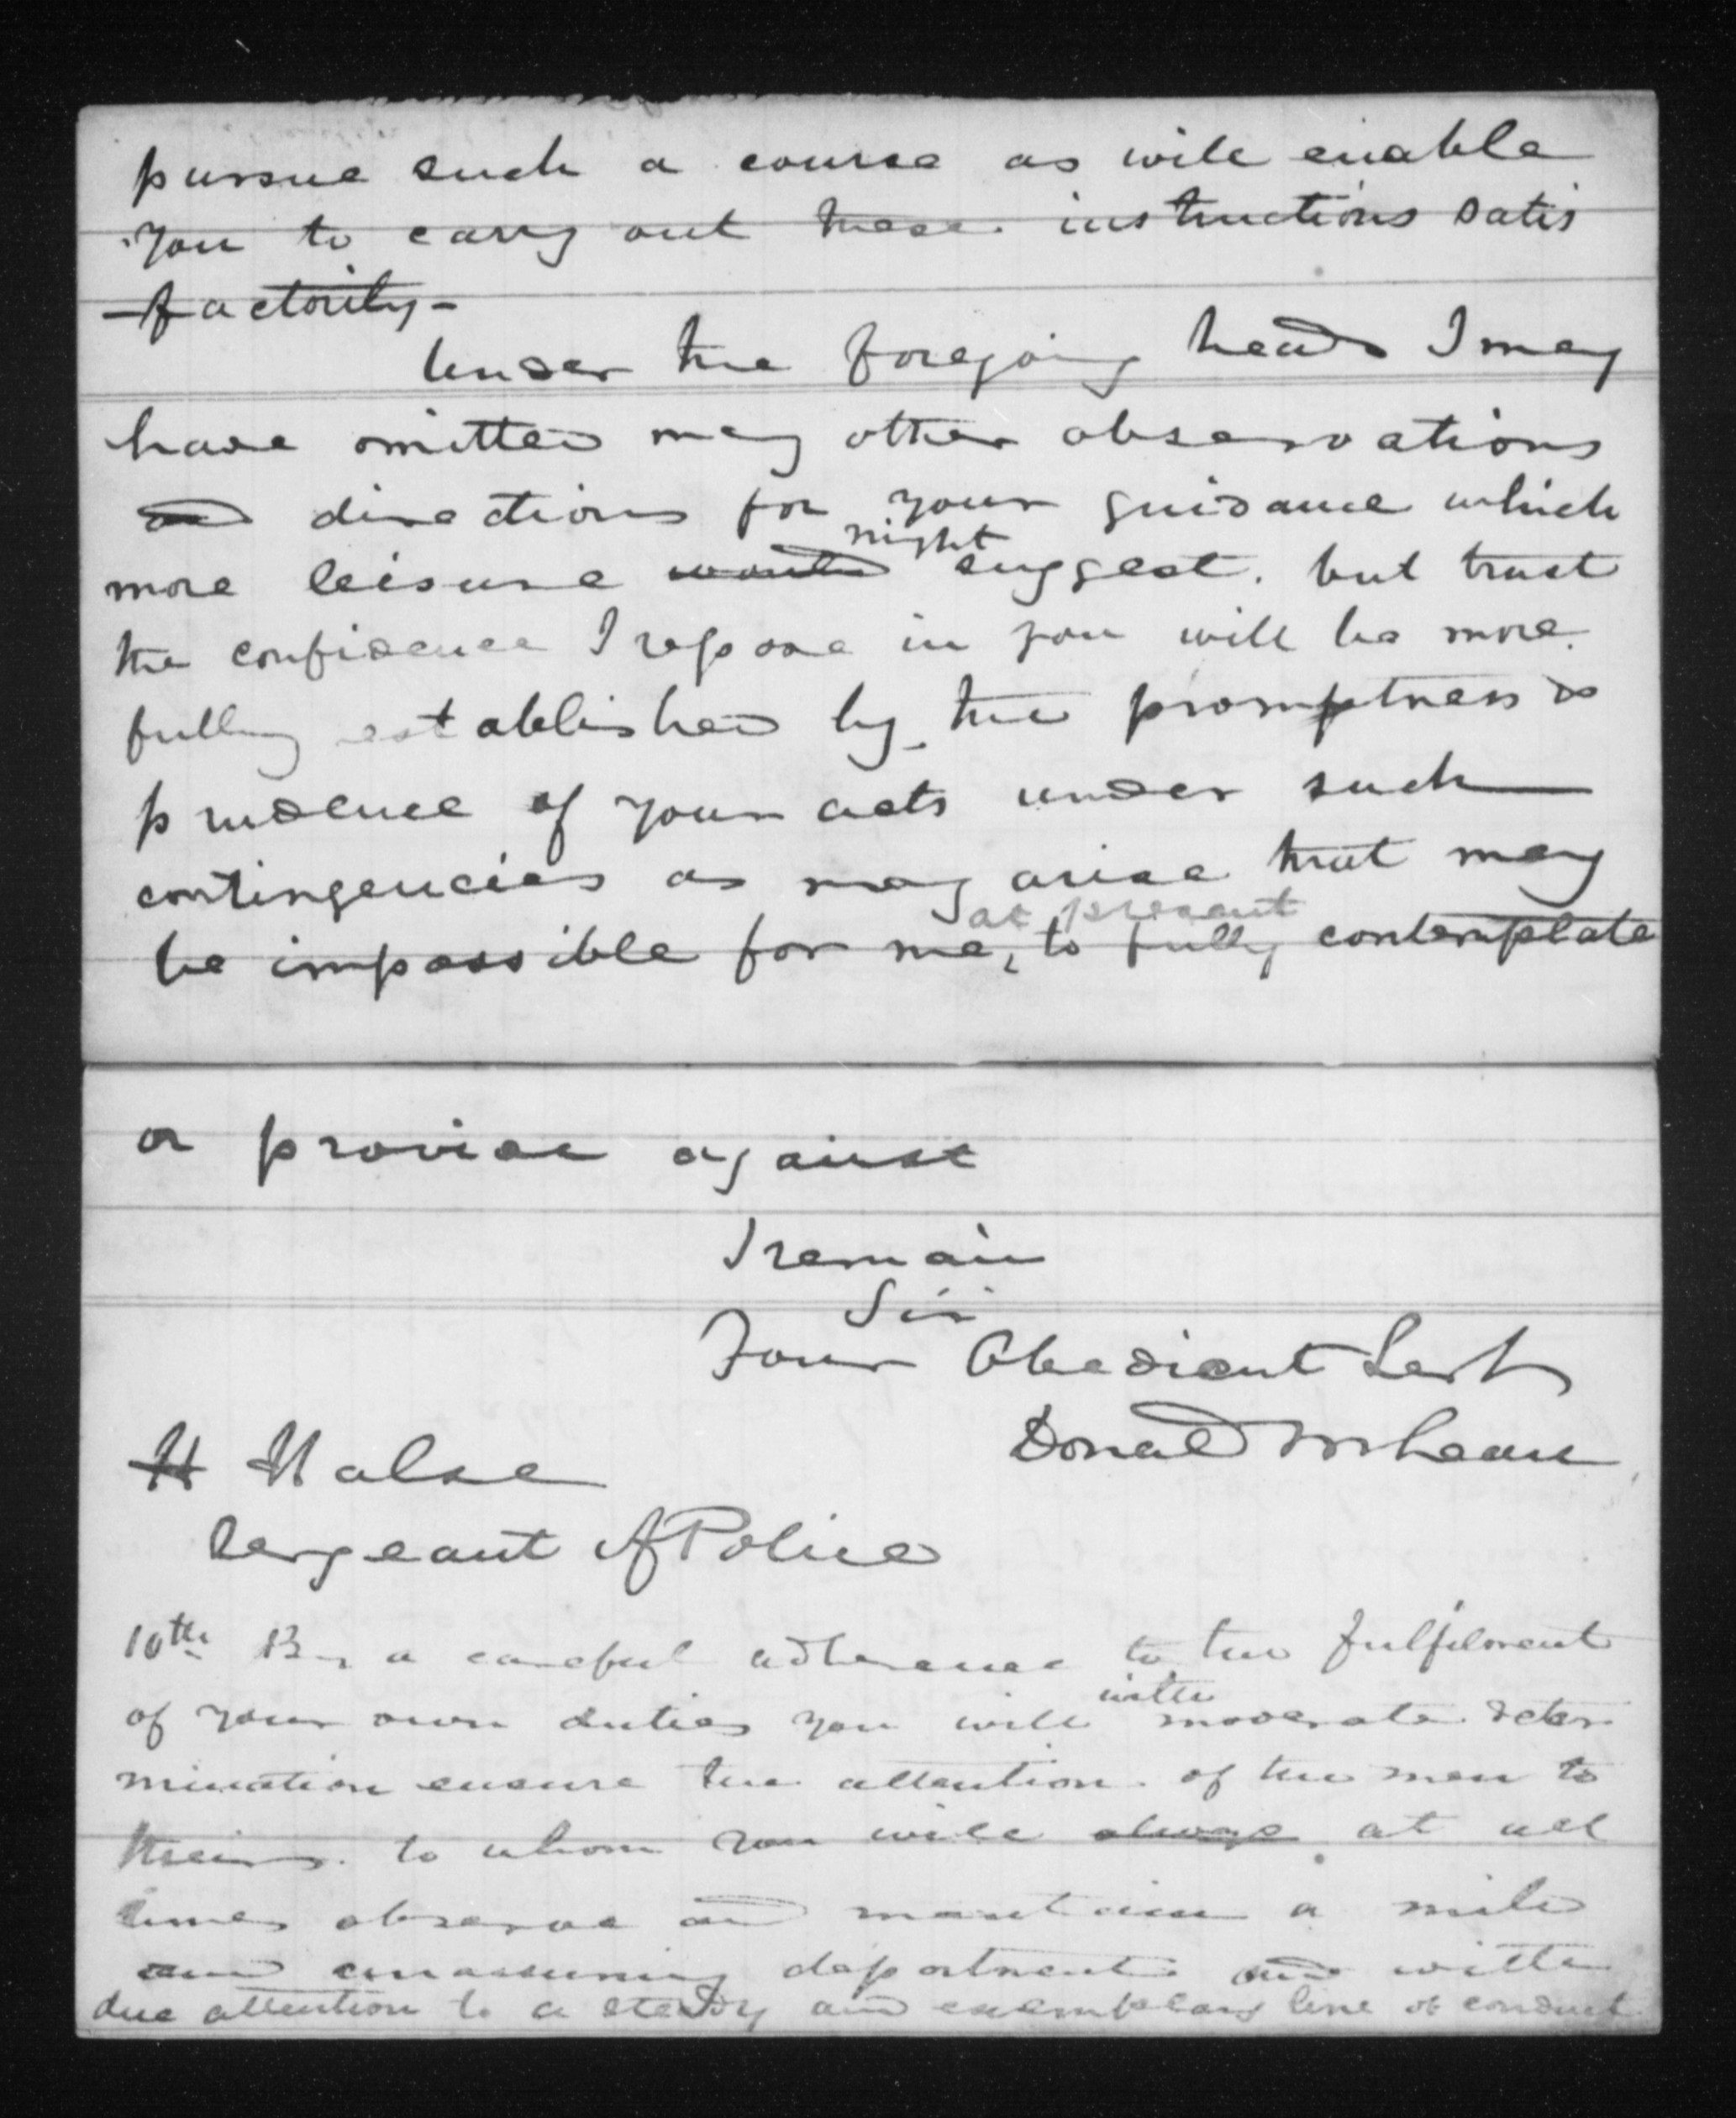 pursue such a course as will enable
you to carry out these instructions satis
factorily -
Under the foregoing heads I may
have omitted many other observations
and directions for your guidance which
might
more leisure would suggest. but trust
the confidence I repose in you will be more
fully established by the promptness &
prudence of your acts under such
contingencies as may arise that may
at present
be impossible for me, to fully contemplate
or provide against
I remain
Sir
Your Obedient Servt
Donald McLean
H Halse
Sergeant A Police
10th By a careful adherence to the fulfilment
with
of your own duties you will moderate deter
mination ensure the attention of the men to
theirs. to whom you will always at all
times observe and maintain a mild
and unassuming deportment and with
due attention to a steady and exemplary line of conduct